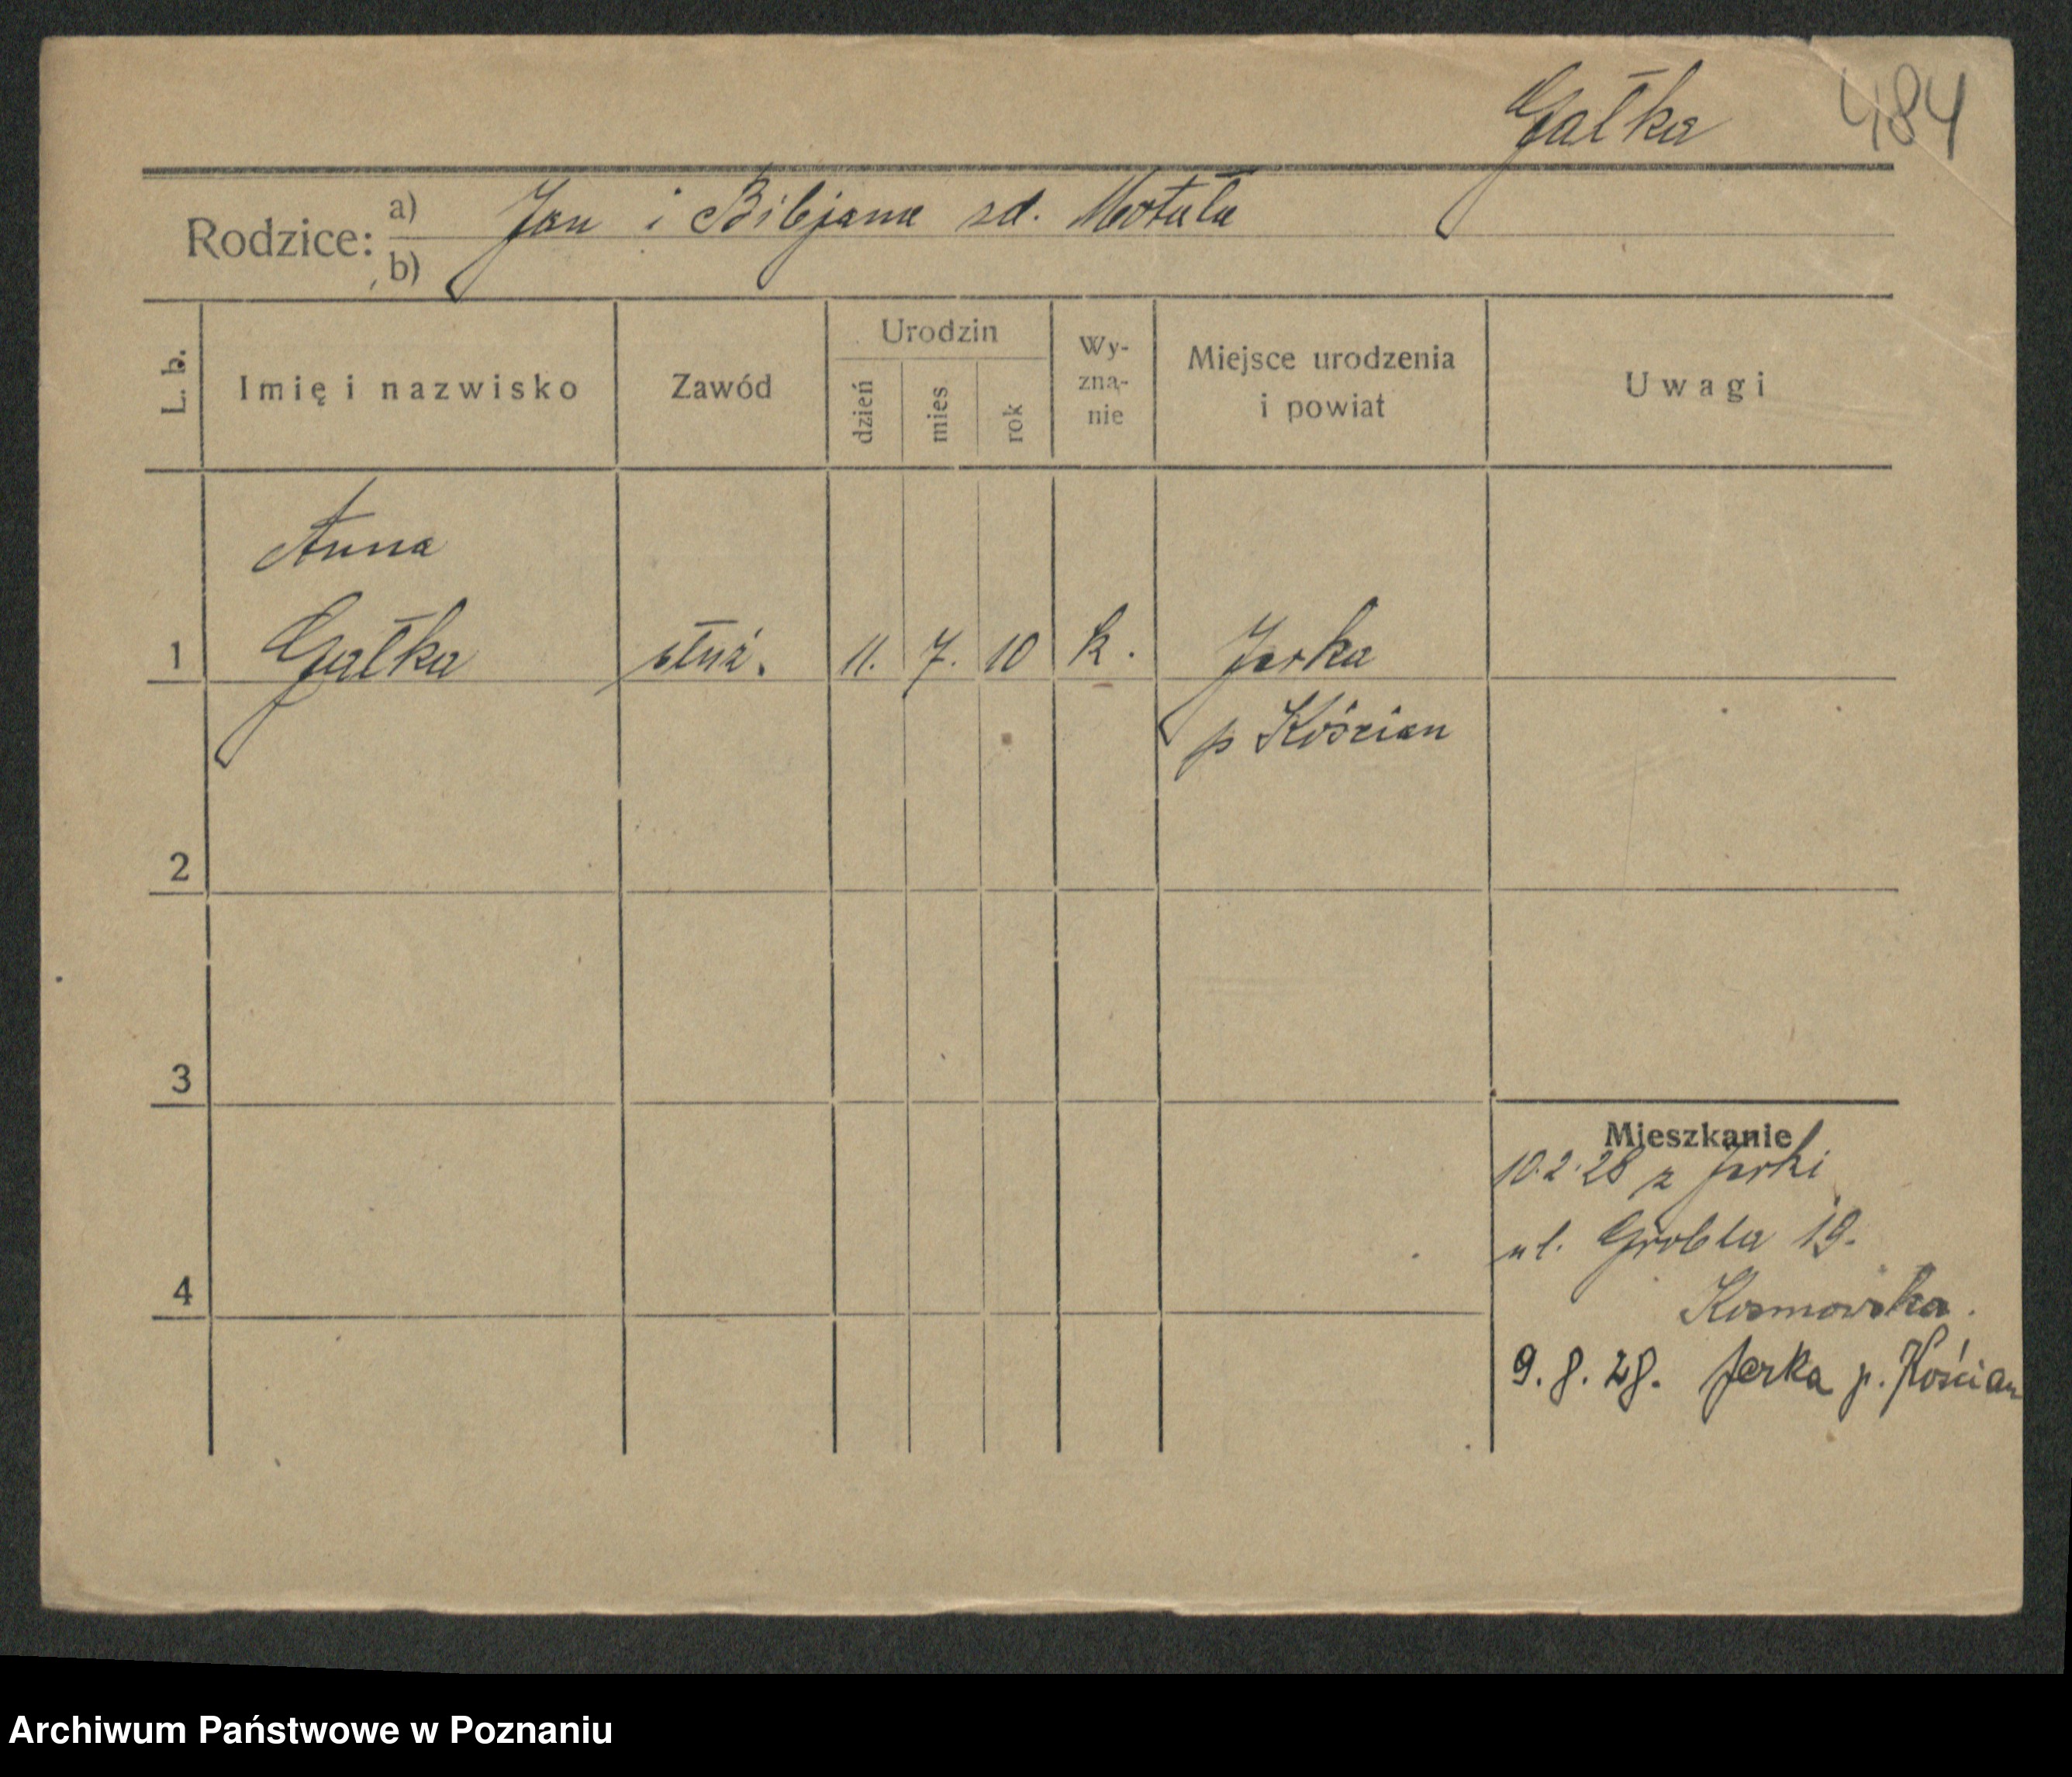 Gałka 484
Rodzice: a) Jan i Bibjana zd. Motała
b)
L. b. Imię i nazwisko Zawód Urodzin dzień mies rok Wy-zna-nie Miejsce urodzenia i powiat Uwagi
Anna
1 Gałka służ. 11. 7. 10 k. Jerka
p Kościan
2
3
Mieszkanie
10.2.28 z Jerki
ul. Grobla 19.
4 Kosmowska.
9.8.28. Jerka p. Kościan
Archiwum Państwowe w Poznaniu